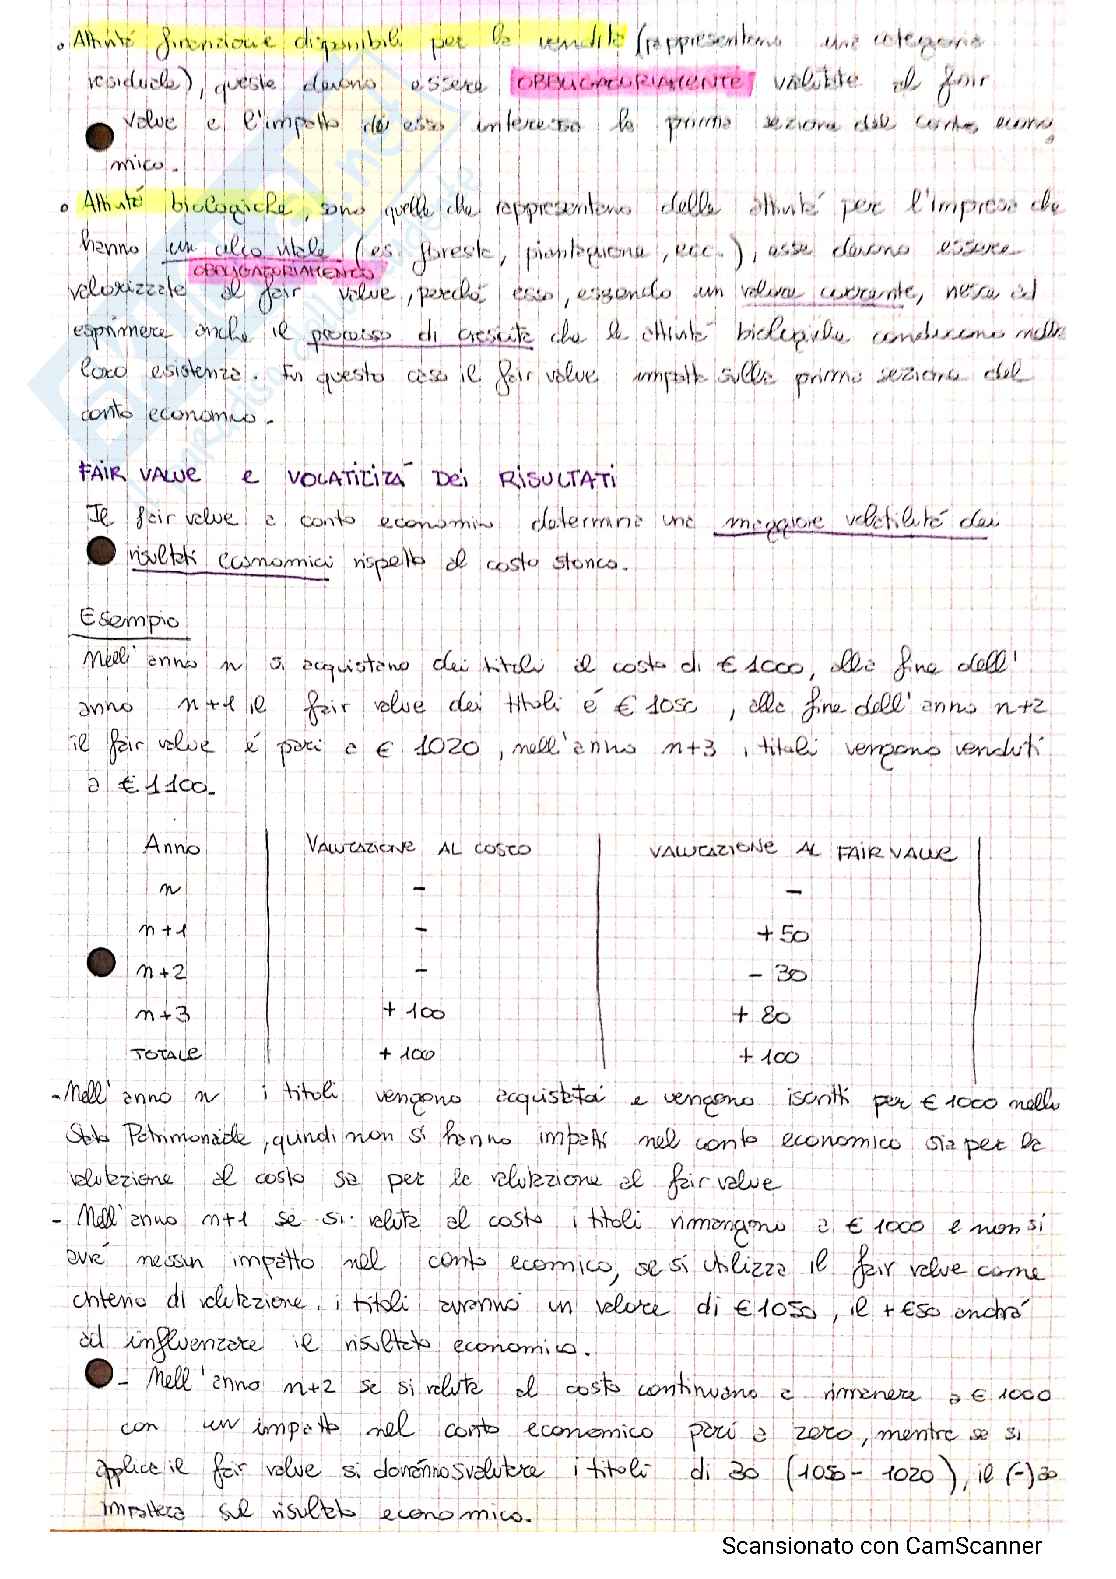 • Attività finanziarie disponibili per la vendita (rappresentano una categoria
residuale), queste devono essere OBBLIGATORIAMENTE valutate al fair
value e l'impatto di esso interessa la prima sezione del conto econo
mico.
• Attività biologiche, sono quelle che rappresentano delle attività per l'impresa che
hanno un ciclo vitale (es. foreste, piantagione, ecc.), esse devono essere
OBBLIGATORIAMENTE
valorizzate al fair value, perché esso, essendo un valore corrente, riesce ad
esprimere anche il processo di crescita che le attività biologiche conducono nella
loro esistenza. In questo caso il fair value impatta sulla prima sezione del
conto economico.
FAIR VALUE e VOLATILITÀ DEI RISULTATI
Il fair value a conto economico determina una maggiore volatilità dei
risultati economici rispetto al costo storico.
Esempio
Nell'anno n si acquistano dei titoli al costo di € 1000, alla fine dell'
anno n+1 il fair value dei titoli é € 1050, alla fine dell'anno n+2
il fair value é pari a € 1020, nell'anno n+3 i titoli vengono venduti
a € 1100.
Anno VALUTAZIONE AL COSTO VALUTAZIONE AL FAIR VALUE
n - -
n+1 - +50
n+2 - - 30
n+3 + 100 + 80
TOTALE + 100 + 100
- Nell'anno n i titoli vengono acquistati e vengono iscritti per € 1000 nello
Stato Patrimoniale, quindi non si hanno impatti nel conto economico sia per la
valutazione al costo sia per la valutazione al fair value
- Nell'anno n+1 se si valuta al costo i titoli rimangono a € 1000 e non si
avrà nessun impatto nel conto ecomico, se si utilizza il fair value come
criterio di valutazione, i titoli avranno un valore di € 1050, il +€50 andrà
ad influenzare il risultato economico.
- Nell'anno n+2 se si valuta al costo continuano a rimanere a € 1000
con un impatto nel conto economico pari a zero, mentre se si
applica il fair value si dovranno svalutare i titoli di 30 (1050 - 1020), il (-) 30
impatterà sul risultato economico.
Scansionato con CamScanner